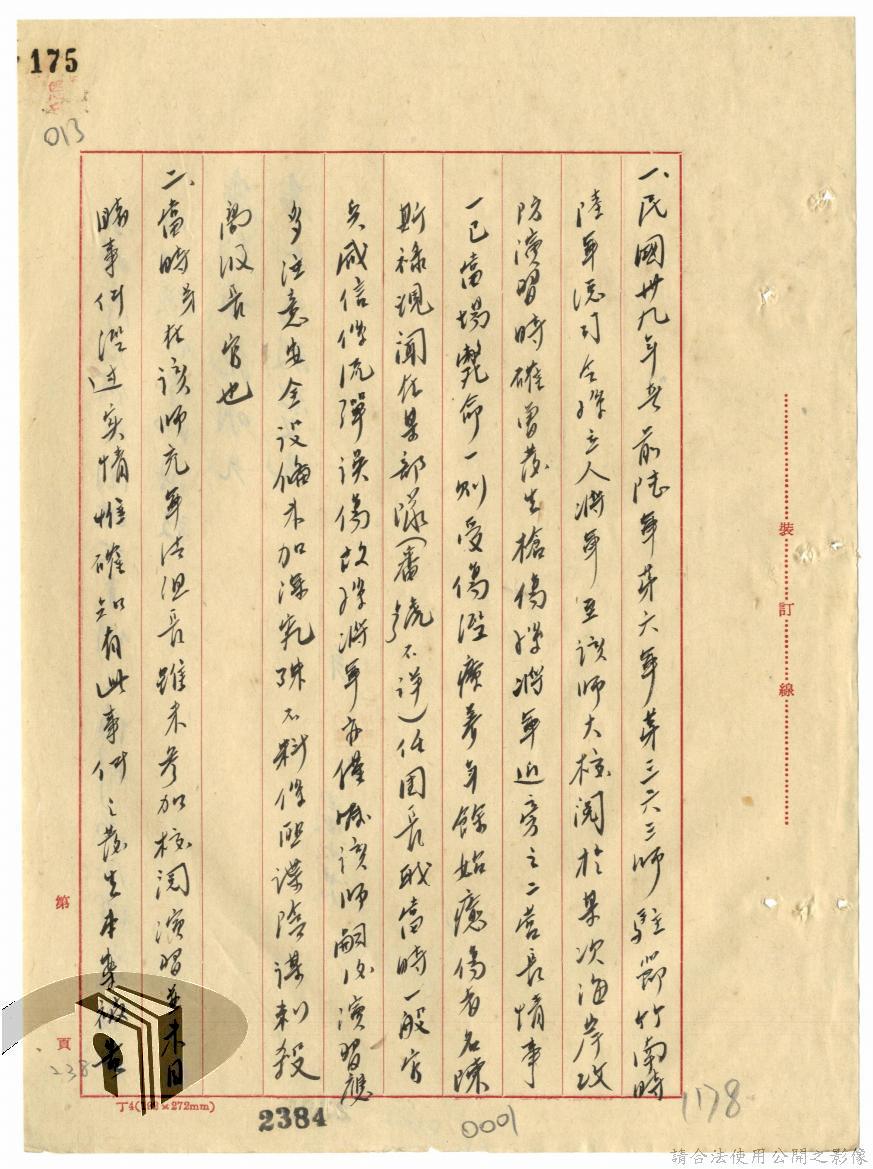 175
013
一、民國卅九年冬前陸軍第六軍第三六三師駐節竹南時
陸軍總司令孫立人將軍至該師大校閱於某次海岸攻
防演習時確曾發生槍傷孫將軍近旁之二營長情事
一已當場斃命一則受傷經療養年餘始癒傷者名陳
斯祿現聞在某部隊(番號不詳)任團長職當時一般官
兵咸信係流彈誤傷故孫將軍亦僅囑該師嗣後演習應
多注意安全設備未加深究殊不料係匪諜陰謀刺殺
高級長官也
二、當時在該師充軍法組長雖未參加校閱演習並未目
睹事件經過實情惟確知有此事件之發生本案被告
裝
訂
線
第
頁
238
丁4(192×272mm)
2384
0001
1178
請合法使用公開之影像